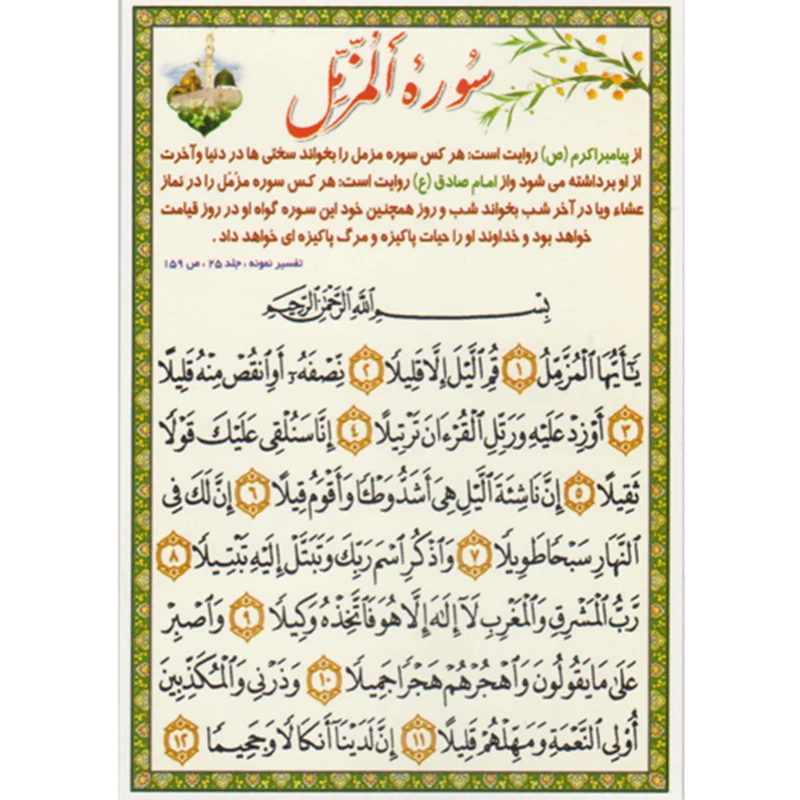 سُورَه المُزَّمِّل
از پیامبراکرم (ص) روایت است: هر کس سوره مزمل را بخواند سختی ها در دنیا وآخرت
از او برداشته می شود واز امام صادق (ع) روایت است: هر کس سوره مزمّل را در نماز
عشاء ویا در آخر شب بخواند شب و روز همچنین خود این سوره گواه او در روز قیامت
خواهد بود و خداوند او را حیات پاکیزه و مرگ پاکیزه ای خواهد داد .
تفسیر نمونه ، جلد ۲۵ ، ص ۱۵۹
بِسْمِ اللَّهِ الرَّحْمَٰنِ الرَّحِيمِ
يَٰٓأَيُّهَا الْمُزَّمِّلُ ١ قُمِ الَّيْلَ إِلَّا قَلِيلًا ٢ نِّصْفَهُۥٓ أَوِ انقُصْ مِنْهُ قَلِيلًا
٣ أَوْ زِدْ عَلَيْهِ وَرَتِّلِ الْقُرْءَانَ تَرْتِيلًا ٤ إِنَّا سَنُلْقِى عَلَيْكَ قَوْلًا
ثَقِيلًا ٥ إِنَّ نَاشِئَةَ الَّيْلِ هِىَ أَشَدُّ وَطْـًٔا وَأَقْوَمُ قِيلًا ٦ إِنَّ لَكَ فِى
النَّهَارِ سَبْحًا طَوِيلًا ٧ وَاذْكُرِ اسْمَ رَبِّكَ وَتَبَتَّلْ إِلَيْهِ تَبْتِيلًا ٨
رَّبُّ الْمَشْرِقِ وَالْمَغْرِبِ لَآ إِلَٰهَ إِلَّا هُوَ فَاتَّخِذْهُ وَكِيلًا ٩ وَاصْبِرْ
عَلَىٰ مَا يَقُولُونَ وَاهْجُرْهُمْ هَجْرًا جَمِيلًا ١٠ وَذَرْنِى وَالْمُكَذِّبِينَ
أُو۟لِى النَّعْمَةِ وَمَهِّلْهُمْ قَلِيلًا ١١ إِنَّ لَدَيْنَآ أَنكَالًا وَجَحِيمًا ١٢